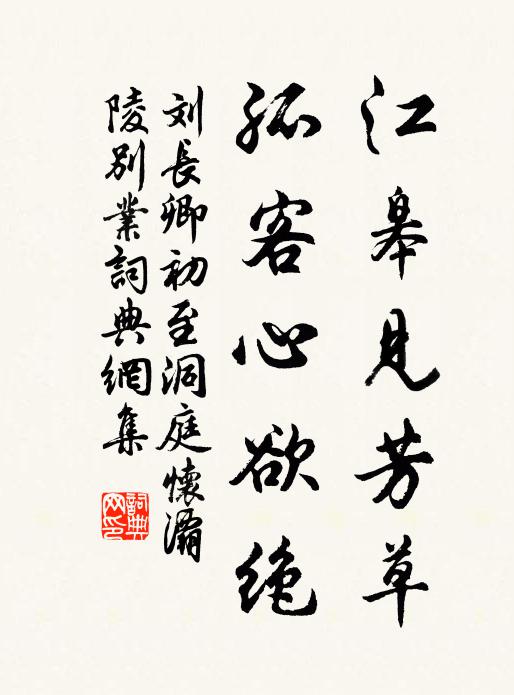 江皋見芳草
孤客心欲絶
刘長卿初至洞庭懷灞
陵别業詞典網集
詞典
网印